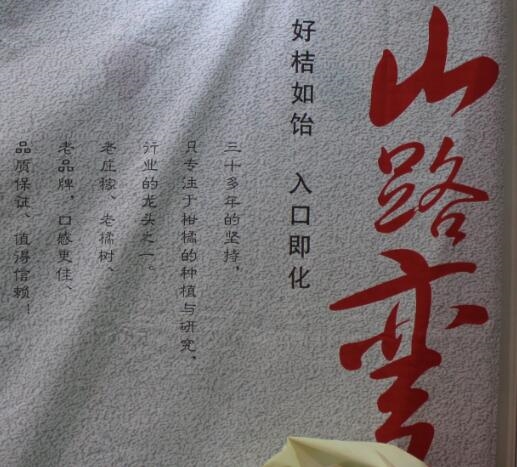 山路弯
好桔如饴 入口即化
三十多年的坚持，
只专注于柑橘的种植与研究，
行业的龙头之一。
老庄稼、老橘树、
老品牌，口感更佳、
品质保证、值得信赖！